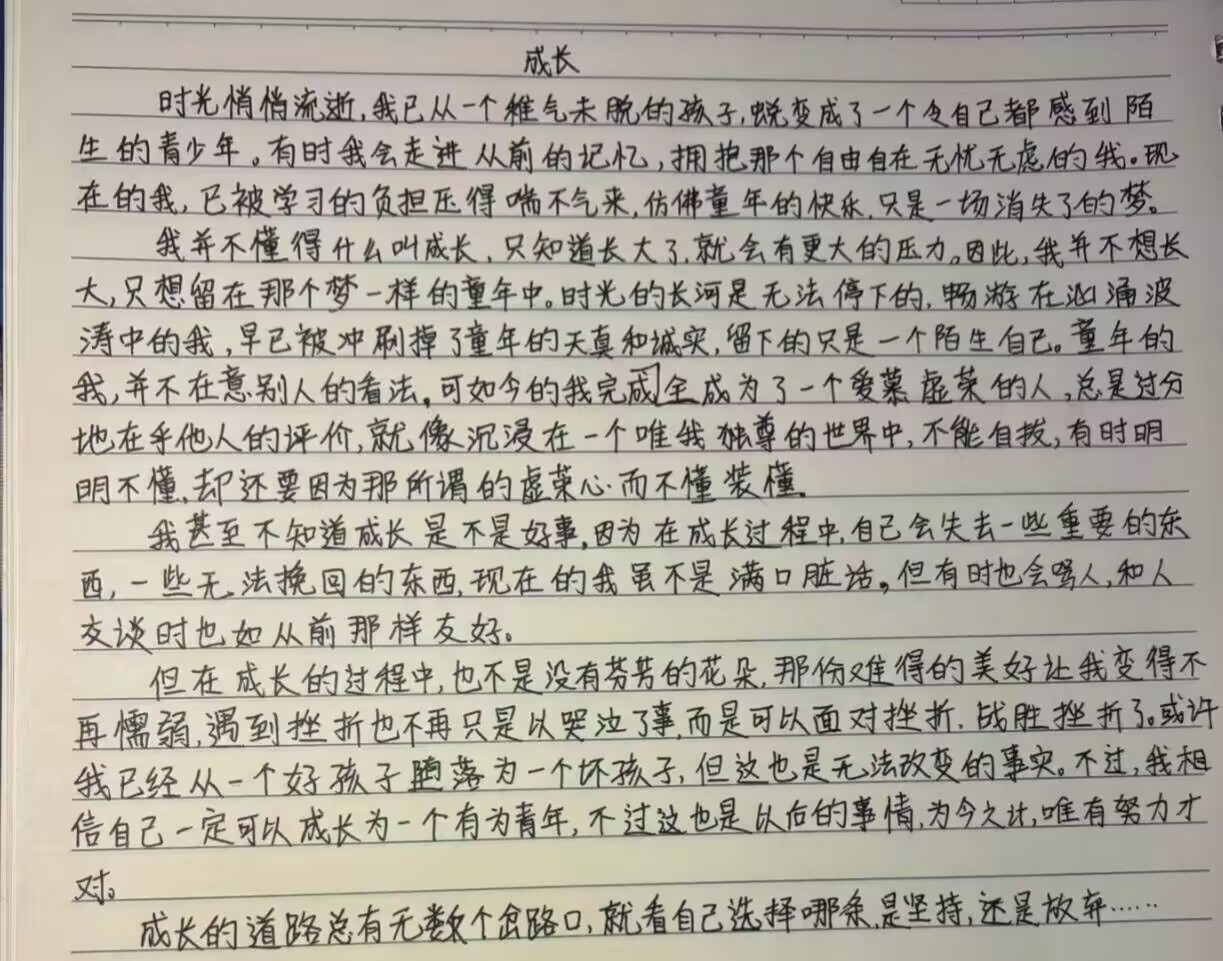 成长
时光悄悄流逝,我已从一个稚气未脱的孩子,蜕变成了一个令自己都感到陌
生的青少年。有时我会走进从前的记忆,拥抱那个自由自在无忧无虑的我。现
在的我,已被学习的负担压得喘不气来,仿佛童年的快乐,只是一场消失了的梦。
我并不懂得什么叫成长,只知道长大了,就会有更大的压力。因此,我并不想长
大,只想留在那个梦一样的童年中。时光的长河是无法停下的,畅游在汹涌波
涛中的我,早已被冲刷掉了童年的天真和诚实,留下的只是一个陌生自己。童年的
我,并不在意别人的看法。可如今的我完成全成为了一个爱慕虚荣的人,总是过分
地在乎他人的评价,就像沉浸在一个唯我独尊的世界中,不能自拔,有时明
明不懂,却还要因为那所谓的虚荣心而不懂装懂。
我甚至不知道成长是不是好事,因为在成长过程中,自己会失去一些重要的东
西,一些无法挽回的东西,现在的我虽不是满口脏话。但有时也会骂人,和人
交谈时也如从前那样友好。
但在成长的过程中,也不是没有芬芳的花朵,那份难得的美好让我变得不
再懦弱,遇到挫折也不再只是以哭泣了事,而是可以面对挫折,战胜挫折了。或许
我已经从一个好孩子堕落为一个坏孩子,但这也是无法改变的事实。不过,我相
信自己一定可以成长为一个有为青年,不过这也是以后的事情,为今之计,唯有努力才
对。
成长的道路总有无数个岔路口,就看自己选择哪条,是坚持,还是放弃……